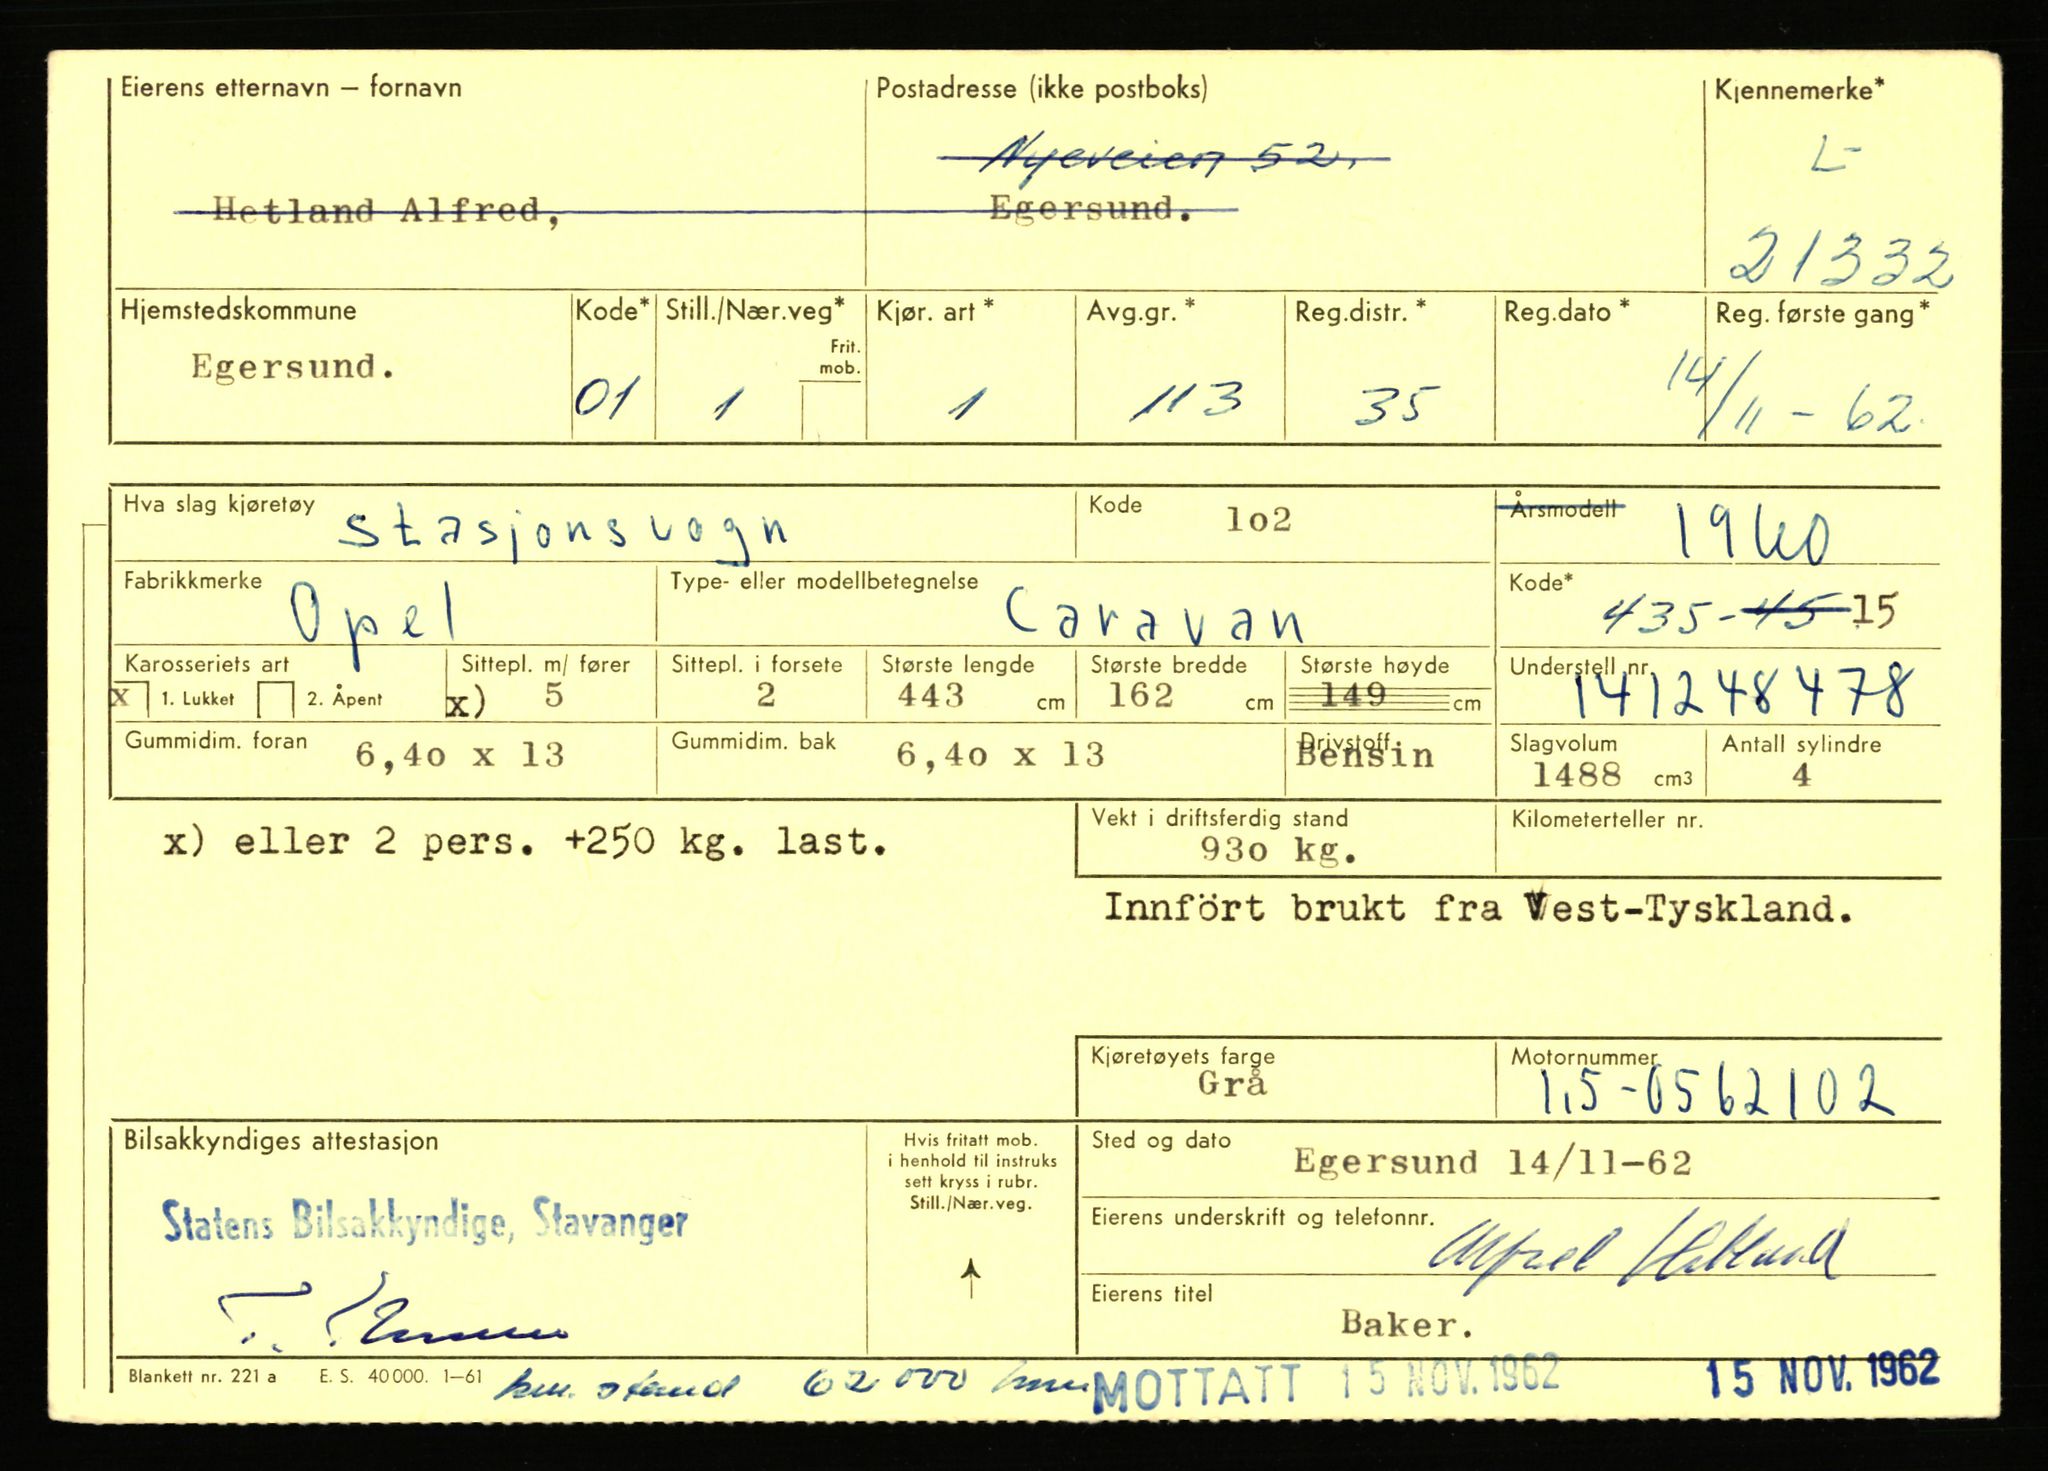 Eierens etternavn – fornavn
Postadresse (ikke postboks)
Kjennemerke*
Nyeveien 52.
L-
Hetland Alfred,
Egersund.
21332
Hjemstedskommune
Kode*
Still./Nær.veg*
Kjør. art *
Avg.gr. *
Reg.distr. *
Reg.dato *
Reg. første gang*
Frit. mob.
Egersund.
01
1
1
113
35
14/11 - 62.
Hva slag kjøretøy
stasjonsvogn
Kode
1o2
Årsmodell
1960
Fabrikkmerke
Opel
Type- eller modellbetegnelse
Caravan
Kode*
435-45 15
Karosseriets art
x 1. Lukket 2. Åpent
Sittepl. m/ fører
x) 5
Sittepl. i forsete
2
Største lengde
443 cm
Største bredde
162 cm
Største høyde
149 cm
Understell nr.
141248478
Gummidim. foran
6,4o x 13
Gummidim. bak
6,4o x 13
Drivstoff
Bensin
Slagvolum
1488 cm3
Antall sylindre
4
x) eller 2 pers. +250 kg. last.
Vekt i driftsferdig stand
93o kg.
Kilometerteller nr.
Innfört brukt fra Vest-Tyskland.
Kjøretøyets farge
Grå
Motornummer
1,5-0562102
Bilsakkyndiges attestasjon
Hvis fritatt mob.
i henhold til instruks
sett kryss i rubr.
Still./Nær.veg.
Sted og dato
Egersund 14/11-62
Statens Bilsakkyndige, Stavanger
Eierens underskrift og telefonnr.
Alfred Hetland
Eierens titel
Baker.
Blankett nr. 221 a E. S. 40 000. 1–61
km. stand 62 000 km
MOTTATT 15 NOV. 1962
15 NOV. 1962